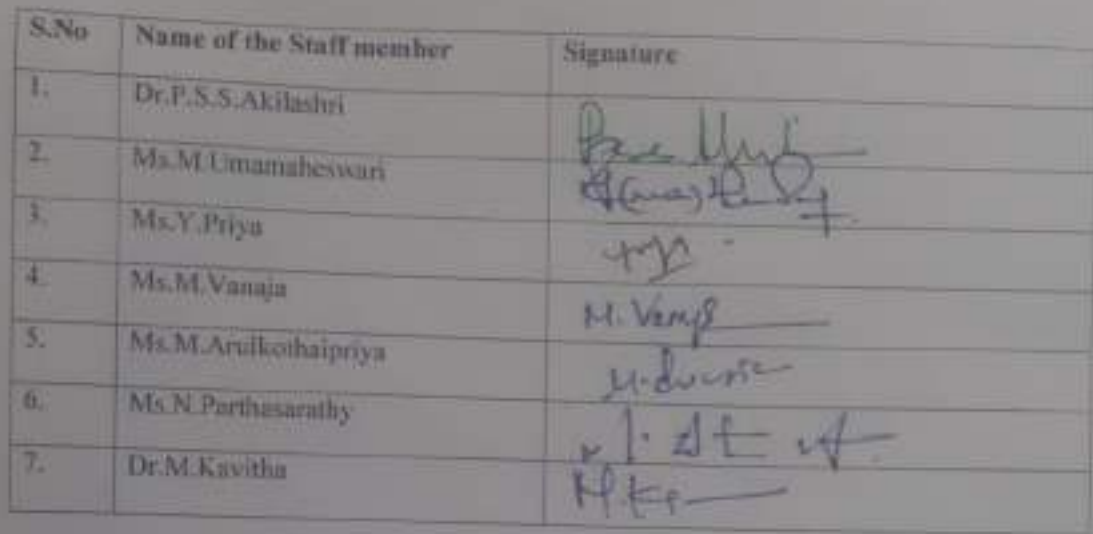 S.No Name of the Staff member Signature
1. Dr.P.S.S.Akilashri
2. Ms.M.Umamaheswari
3. Ms.Y.Priya
4. Ms.M.Vanaja M.
5. Ms.M.Arulkothaipriya
6. Ms.N.Parthasarathy
7. Dr.M.Kavitha